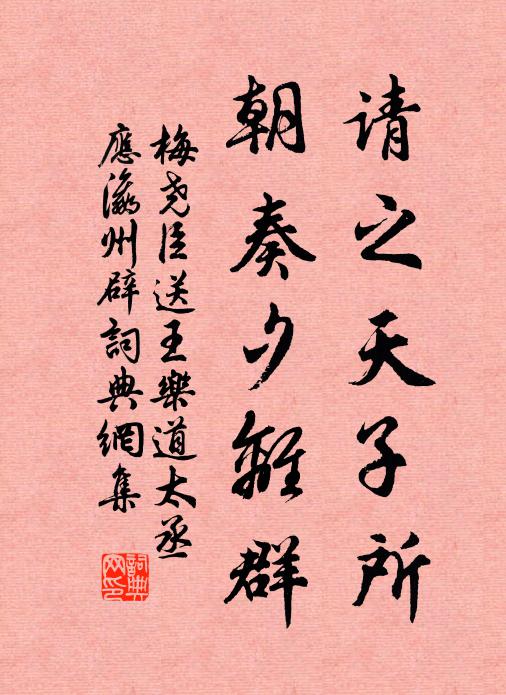 请之天子所
朝奏夕離群
梅尧臣送王樂道太丞
應瀛州辟詞典網集
詞典
网印